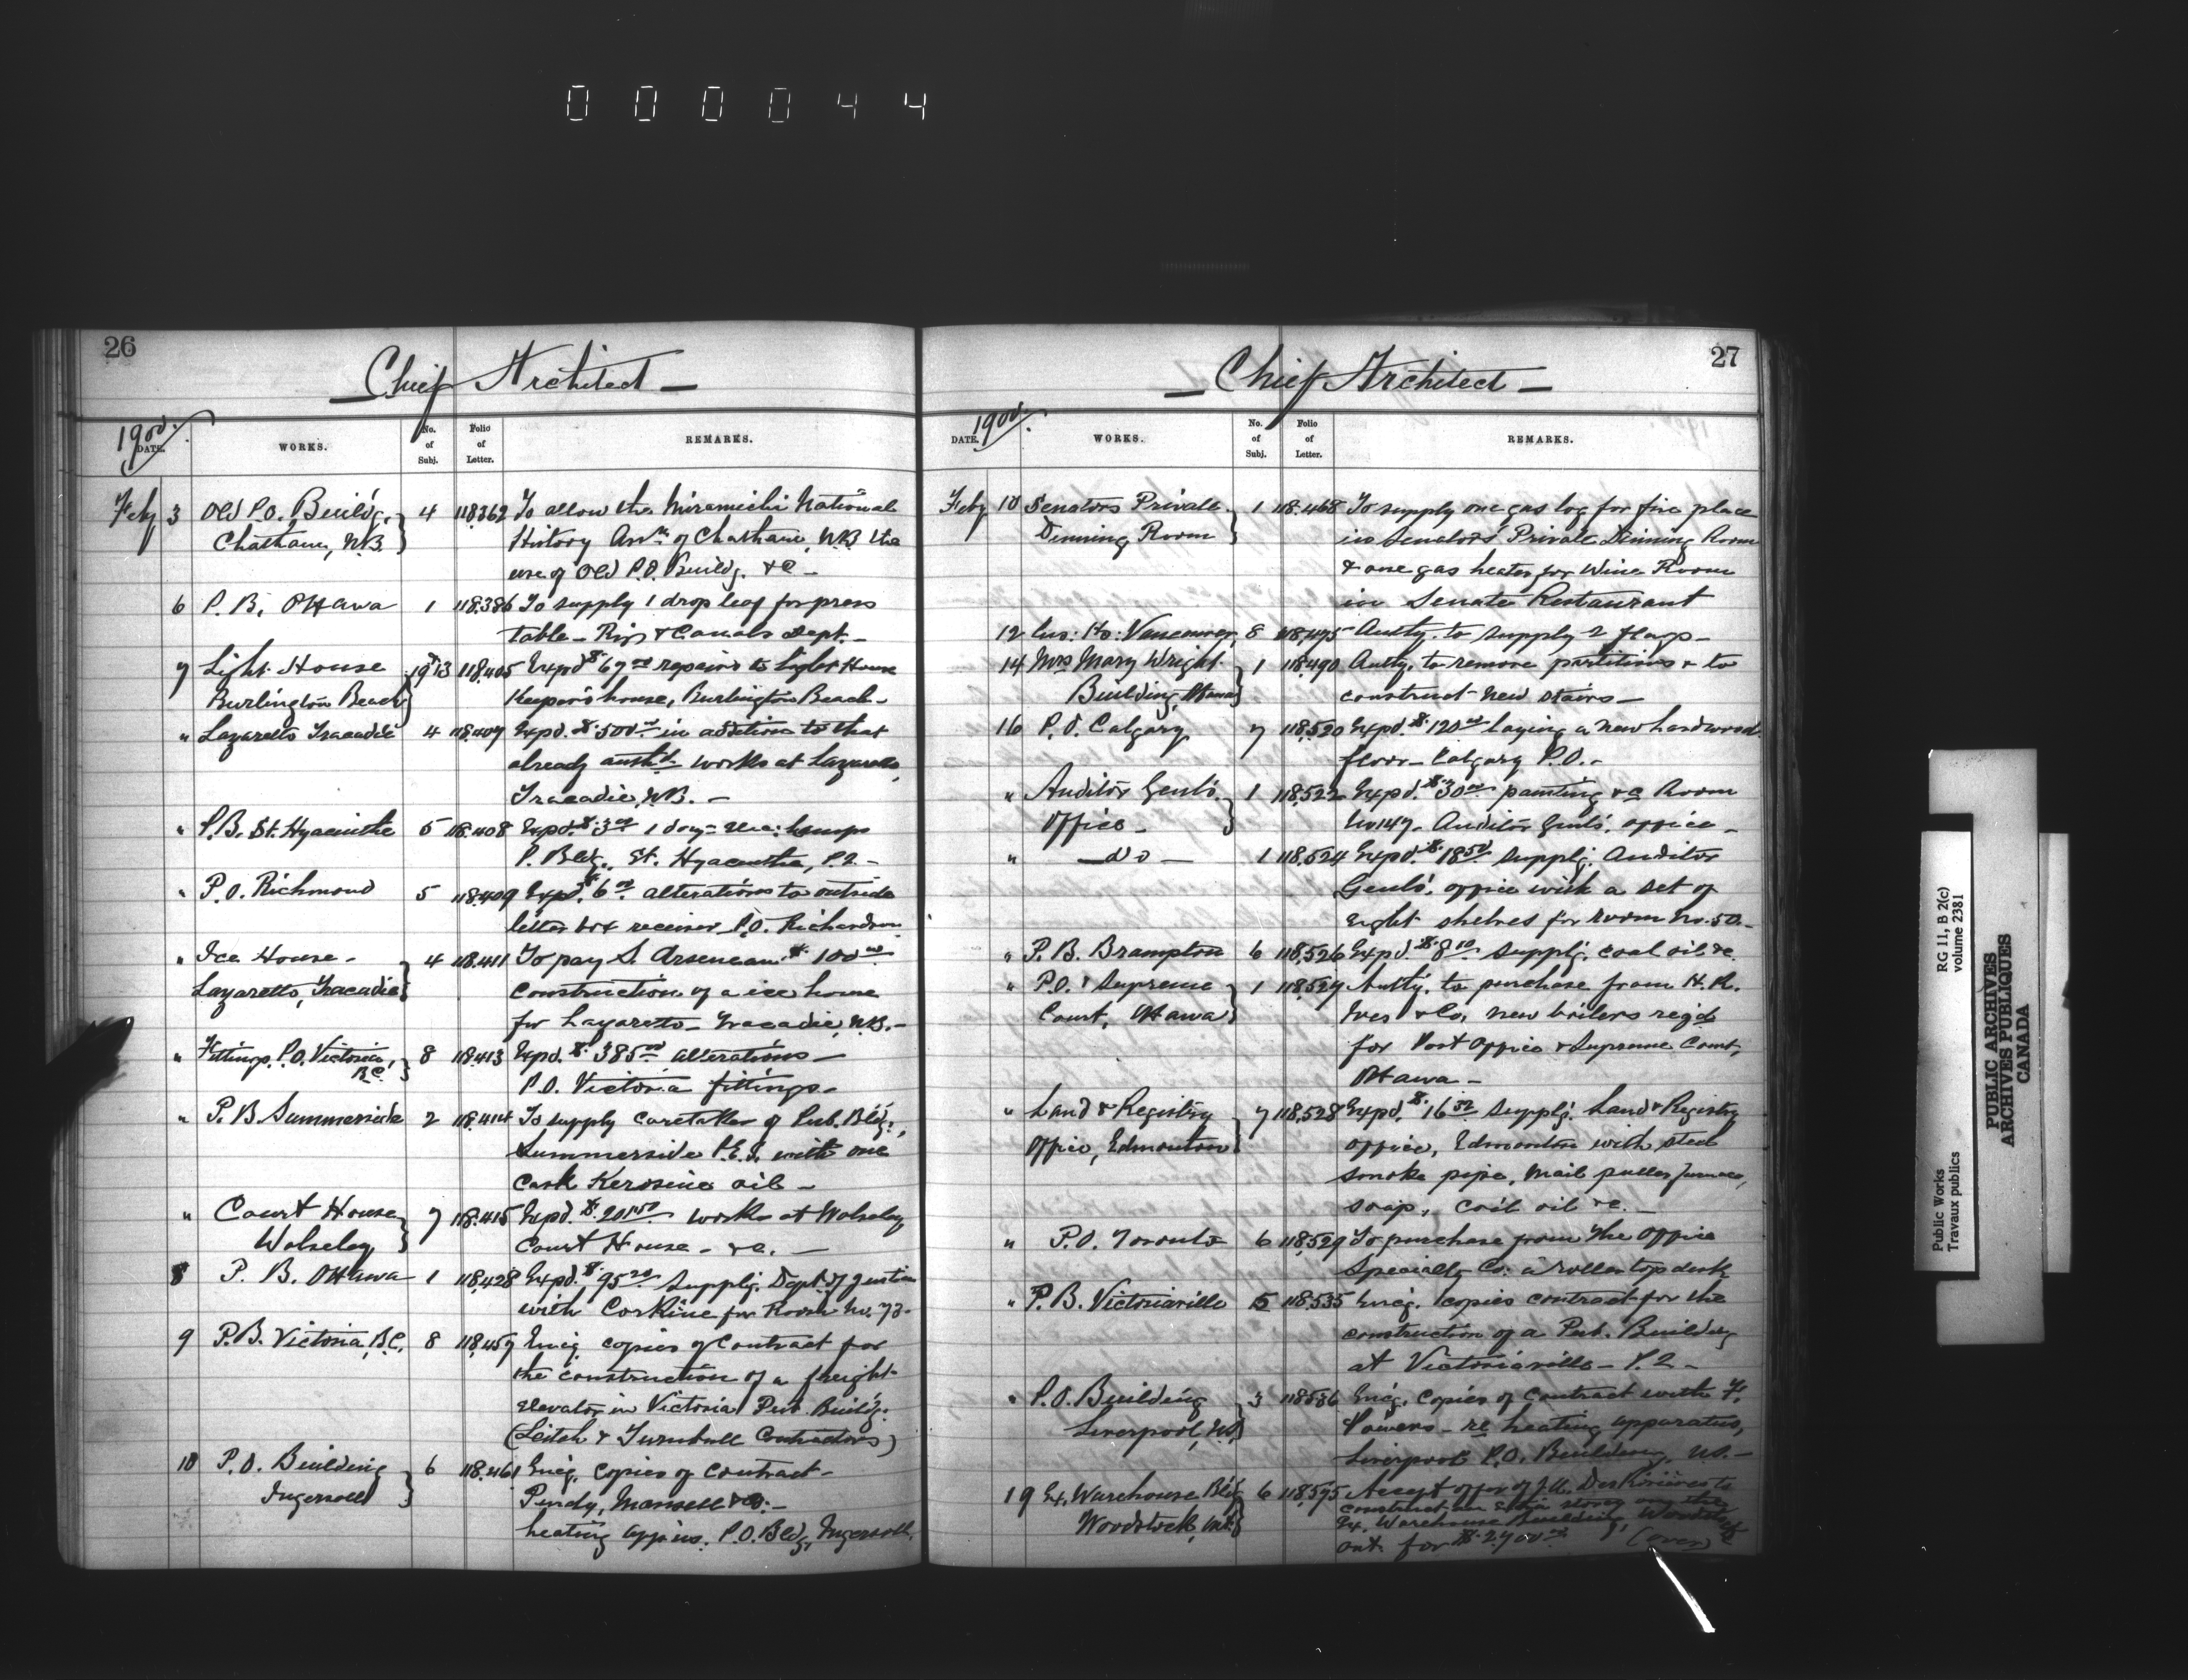 000044
26
Chief Architect
1900.
DATE.
WORKS.
No. of Subj.
Folio of Letter.
REMARKS.
Feby 3 Old P.O. Build'g. 4 118362 To allow the Miramichi National
Chatham, N.B. History Assn of Chatham, N.B. the
use of Old P.O. Build'g. &c -
6 P. B. Ottawa 1 118.386 To supply 1 drop leaf for press
table - Rys & Canals Dept. -
7 Light House 19 & 13 118.405 Expd $67.00 repairs to Light House
Burlington Beach Keeper's house, Burlington Beach -
" Lazaretto Tracadie 4 118.407 Expd. $500.00 in addition to that
already authd works at Lazaretto,
Tracadie, N.B. -
" P.B. St. Hyacinthe 5 118.408 Expd. $3.00 1 doz - elec: lamps
P. Bldg., St. Hyacinthe, P.Q -
" P.O. Richmond 5 118.409 Expd. $6.00 alterations to outside
letter box receiver P.O. Richardson
" Ice House - 4 118.411 To pay S. Arseneau $100.00
Lazaretto, Tracadie construction of a ice house
for Lazaretto - Tracadie, N.B. -
" Fittings, P.O. Victoria, B.C. 8 118.413 Expd. $385.00 alterations -
P.O. Victoria fittings -
" P. B. Summerside 2 118.414 To supply caretaker of Pub. Bld'g.,
Summerside P.E.I. with one
cask Kerosine oil -
" Court House 7 118.415 Expd. $201.50 works at Wolseley
Wolseley Court House - &c. -
8 P. B. Ottawa 1 118,428 Expd. $95.20 supplg. Dept. of Justice
with Corkine for Room No. 73 -
9 P.B. Victoria, B.C. 8 118,459 Encg. copies of Contract for
the construction of a freight
elevator in Victoria Pub. Build'g.
(Leitch & Turnbull Contractors)
10 P.O. Building 6 118.461 Encg. copies of contract -
Ingersoll Purdy, Mansell & Co. -
heating app'us. P.O. Bldg, Ingersoll.
27
Chief Architect
1900
DATE.
WORKS.
No. of Subj.
Folio of Letter.
REMARKS.
Feby 10 Senators Private 1 118.468 To supply one gas log for fire place
Dinning Room in Senators' Private Dinning Room
& one gas heater for Wine Room
in Senate Restaurant
12 Cus: Ho: Vancouver, 8 118,475 Authy. to supply 2 flags -
14 Mrs Mary Wright 1 118,490 Authy. to remove partitions & to
Building, Ottawa construct new stairs -
16 P. O. Calgary 7 118,520 Expd. $120.00 laying a new hardwood
floor - Calgary P.O. -
" Auditor Genl's. 1 118,522 Expd. $30.00 painting &c Room
Office - No 147 - Auditor Genl's. office -
" - do - 1 118,524 Expd. $18.50 supplg. Auditor
Genls'. office with a set of
eight shelves for room No. 50 -
" P. B. Brampton 6 118,526 Expd. $8.10 supplg. coal oil &c.
" P.O. & Supreme 1 118,527 Authy. to purchase from H. R.
Court, Ottawa Ives & Co, new boilers reqd
for Post Office & Supreme Court,
Ottawa -
" Land & Registry 7 118,528 Expd. $16.32 supplg. Land & Registry
Office, Edmonton office, Edmonton with steel
smoke pipe, nail puller, furnace,
soap, coil oil &c. -
" P.O. Toronto 6 118,529 To purchase from the Office
Specialty Co: a roller top desk
" P. B. Victoriaville 5 118,535 Encg. copies contract for the
construction of a Pub. Building
at Victoriaville - P.Q -
" P.O. Building 3 118536 Encg. copies of contract with F.
Liverpool, N.S. Powers - re heating apparatus,
Liverpool P.O. Building, N.S. -
19 Ex. Warehouse Bldg 6 118,595 Accept offer of J.U. DesRivieres to
Woodstock, Ont. construct an extra storey on the
Ex. Warehouse Building, Woodstock
Ont. for $2.700.00 (over)
Public Works
Travaux publics
RG 11, B 2(c)
volume 2381
PUBLIC ARCHIVES
ARCHIVES PUBLIQUES
CANADA